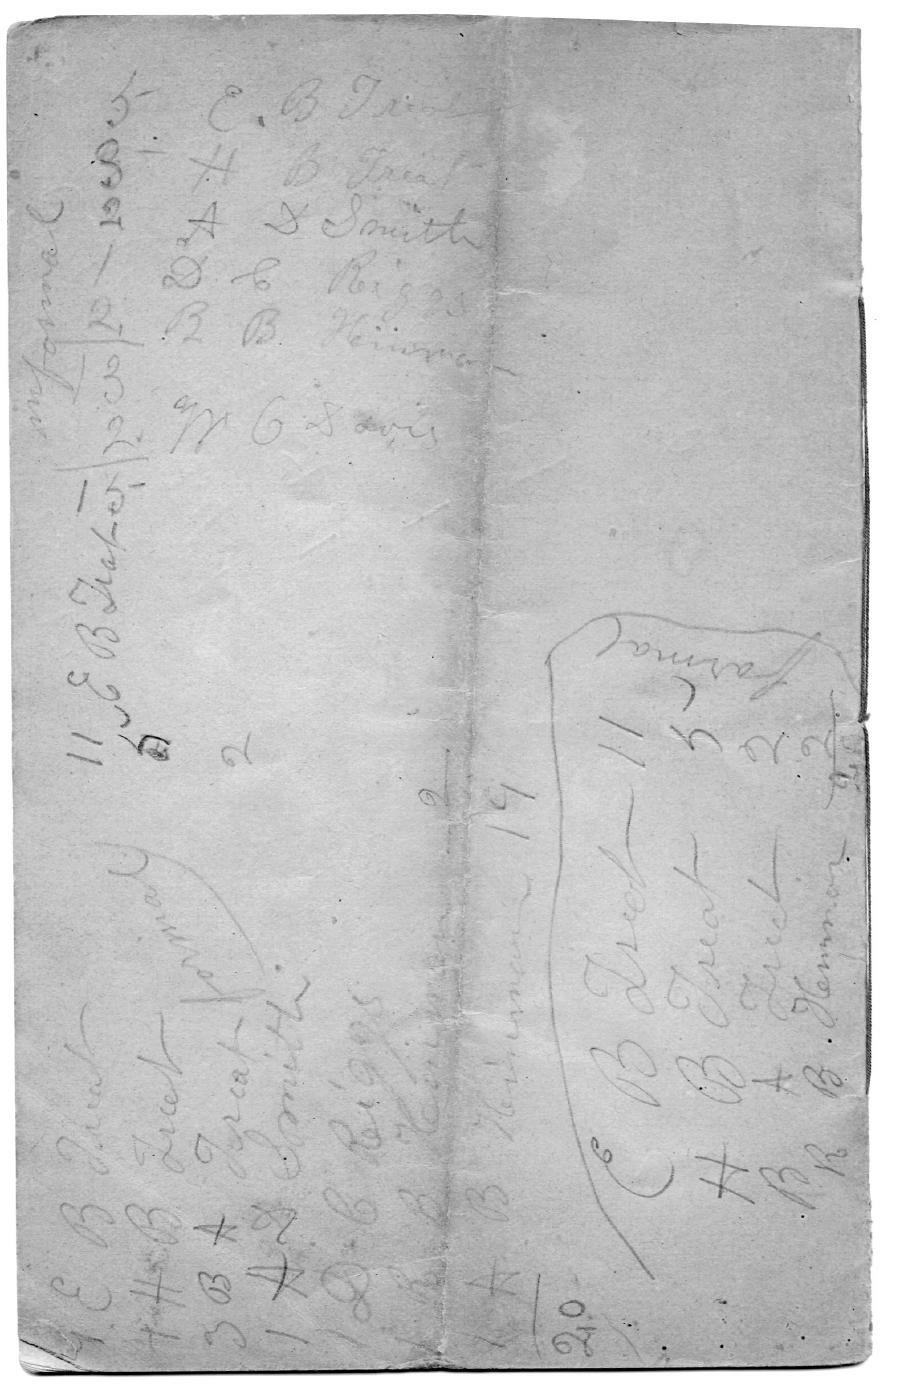 E. B Treat
H B Treat
A L Smith
D C Riggs
R B Hinman
W C Davis
informal
11 E B Treat
5
2
formal
9 E B Treat
4 H B Treat
3 B A Treat
1 A L Smith
1 D C Riggs
1 R B Hinman 2
1 A B Hinman 19
20
formal
E B Treat 11
H B Treat 5
B A Treat 2
R B Hinman 2
20